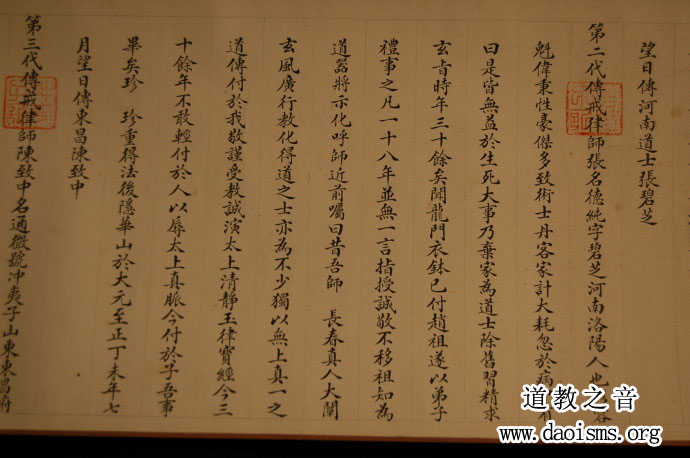 望日傳河南道士張碧芝
第二代傳戒律師張名德純字碧芝河南洛陽人也
魁偉秉性豪傑多致術士丹客家計大耗忽於病
曰是皆無益於生死大事乃棄家為道士除舊習精求
玄旨時年三十餘矣聞龍門衣鉢已付趙祖遂以弟子
禮事之凡一十八年並無一言指授誠敬不移祖知為
道器將示化呼師近前囑曰昔吾師 長春真人大闡
玄風廣行教化得道之士亦為不少獨以無上真一之
道傳付於我敬謹受教誠演太上清靜玉律寶經今三
十餘年不敢輕付於人以辱太上真脈今付於子吾事
畢矣珍 珍重得法後隱華山於大元至正丁未年七
月望日傳東昌陳致中
第三代傳戒律師陳致中名通微號冲夷子山東東昌府
道教之音
www.daoisms.org